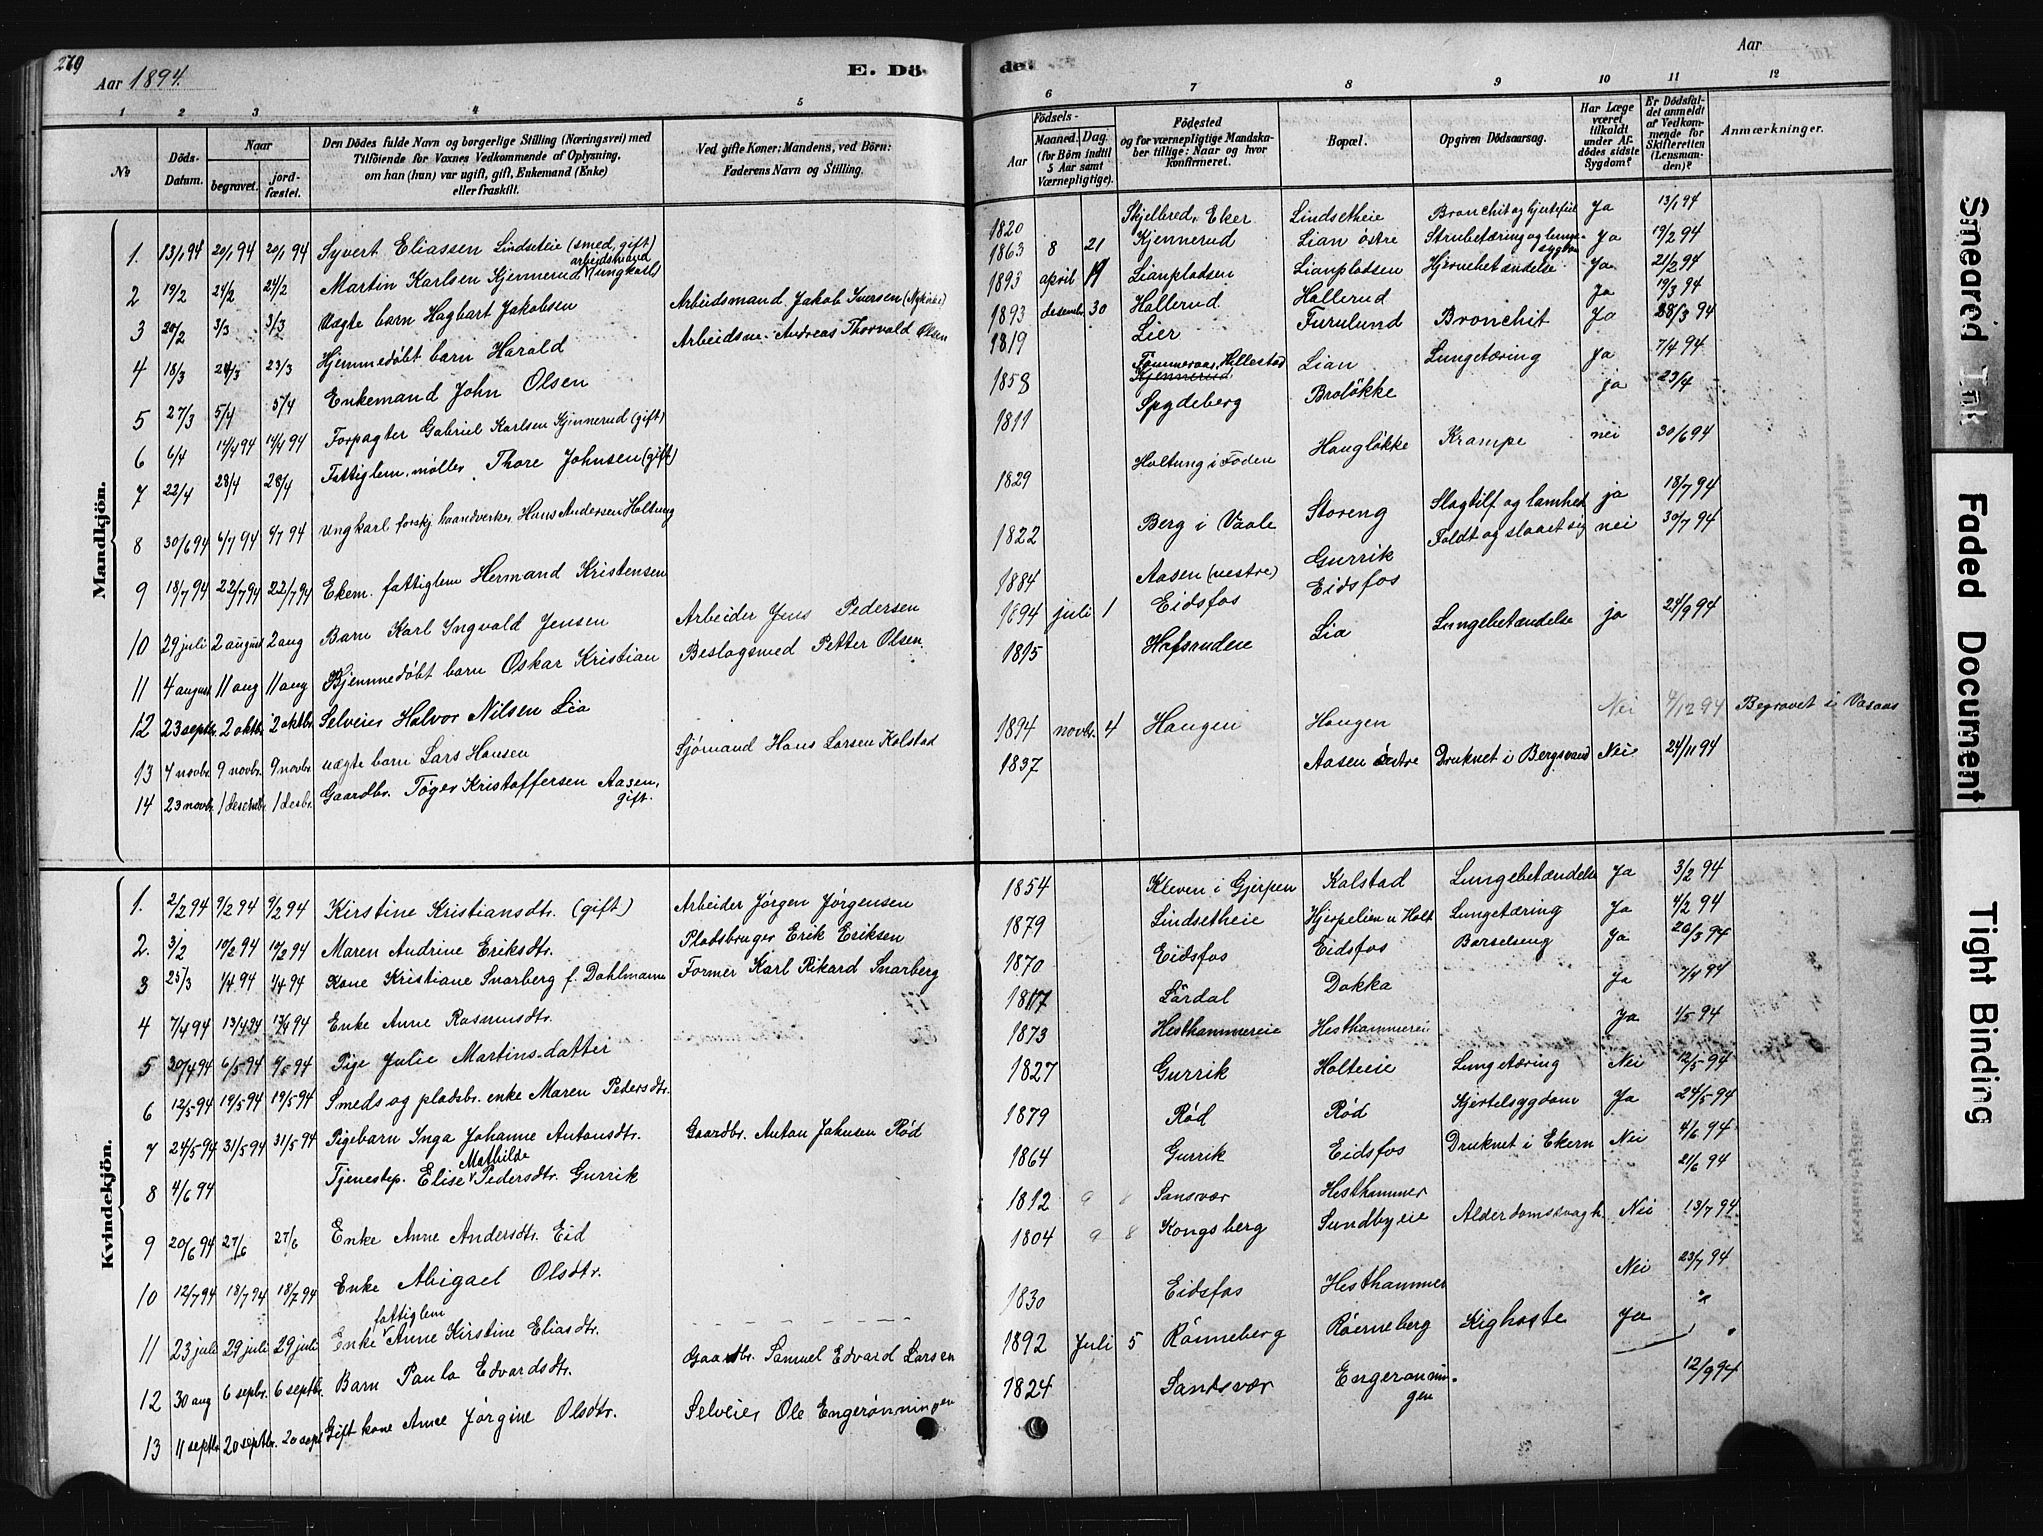 279
Aar 1894.
E. Dö-
de.
Aar
1 2 3 4 5
6 7 8 9 10 11 12
№
Döds-Datum.
Naar
begravet.
jord-fæstet.
Den Dödes fulde Navn og borgerlige Stilling (Næringsvei) med
Tilföiende for Voxnes Vedkommende af Oplysning,
om han (hun) var ugift, gift, Enkemand (Enke)
eller fraskilt.
Ved gifte Koner: Mandens, ved Börn:
Faderens Navn og Stilling.
Födsels-
Aar
Maaned. Dag.
(for Börn indtil
5 Aar samt
Værnepligtige).
Födested
og for værnepligtige Mandska-
ber tillige: Naar og hvor
konfirmeret.
Bopæl.
Opgiven Dödsaarsag.
Har Læge
været
tilkaldt
under Af-
dödes sidste
Sygdom?
Er Dödsfal-
det anmeldt
af Vedkom-
mende for
Skifteretten
(Lensman-
den)?
Anmærkninger.
Mandkjön.
1. 13/1 94 20/1 94 20/1 94 Syvert Eliassen Lindseteie (smed, gift) 1820 Skjelbred, Eker Lindsetheie Bronchit og hjertefeil Ja 13/1 94
2 19/2 24/2 24/2 Martin Karlsen Kjennerud arbeidsmand (ungkarl) 1863 8 21 Kjennerud Lian østre Strubetæring og lunge-sygdom Ja 19/2 94
3 20/2 3/3 3/3 Uægte barn Hagbart Jakobsen Arbeidsmand Jakob Iversen (Nykirke) 1893 april 19 Lianpladsen Lianpladsen Hjernebetændelse Ja 21/2 94
4 18/3 24/3 23/3 Hjemmedøbt barn Harald Arbeidsm. Andreas Thorvald Olsen 1893 desembr. 30 Hallerud Hallerud Ja 19/3 94
5 27/3 5/4 5/4 Enkemand John Olsen 1819 Lier Furulund Bronchit Ja 28/3 94
6 6/4 14/4 94 14/4 94 Forpagter Gabriel Karlsen Kjennerud (gift) 1858 Tømmeraas, Hillestad Kjennerud Lian Lungetæring Ja 7/4 94
7 22/4 28/4 28/4 Fattiglem, møller Thore Johnsen (gift) 1811 Spydeberg Broløkke ja 23/4
8 30/6 94 6/7 94 6/7 94 Ungkarl forskj. haandverker Hans Andersen Holtung 1829 Holtung i Foden Haugløkke Krampe nei 30/6 94
9 18/7 94 22/7 94 22/7 94 Ekem. fattiglem Hermand Kristensen 1822 Berg i Vaale Storeng Slagtilf. og lamhet ja 18/7 94
10 29 juli 2 august 2 aug Barn Karl Ingvald Jensen Arbeider Jens Pedersen 1884 Aasen (vestre) Gurrik Faldt og slaaet sig nei 30/7 94
11 4 august 11 aug 11 aug Hjemmedøbt barn Oskar Kristian Beslagsmed Petter Olsen 1894 juli 1 Eidsfos Eidsfos
12 23 septbr. 2 oktbr. 2 oktbr. Selveier Halvor Nilsen Lia 1815 Hafsundeie Lia Lungebetændelse ja 24/9 94
13 4 novbr. 9 novbr. 9 novbr. uægte barn Lars Hansen Sjømand Hans Larsen Kolstad 1894 novbr. 4 Haugen Haugen Nei 4/12 94 Begravet i Vasaas
14 23 novbr. 1 desembr. 1 desbr. Gaardbr. Tøger Kristoffersen Aasen, gift. 1837 Aasen østre Druknet i Bergsvand Nei 24/11 94
Kvindekjön.
1. 2/2 94 9/2 94 9/2 94 Kirstine Kristiansdtr. (gift) Arbeider Jørgen Jørgensen 1854 Kleven i Gjerpen Kolstad Lungebetændelse Ja 3/2 94
2. 3/2 10/2 94 10/2 94 Maren Andrine Eriksdtr. Pladsbruger Erik Eriksen 1879 Lindsetheie Hjerpelien u Holt Lungetæring Ja 4/2 94
3 25/3 1/4 94 1/4 94 Kone Kristiane Snarberg f. Dahlmann Former Karl Rikard Snarberg 1870 Eidsfos Eidsfos Barselseng Ja 26/3 94
4 7/4 94 13/4 94 13/4 94 Enke Anne Rasmusdtr. 1817 Lardal Dokka Ja 7/4 94
5 30/4 94 6/5 94 6/5 94 Pige Julie Martinsdatter 1873 Hesthammereie Hesthammereie Ja 1/5 94
6 12/5 94 19/5 94 19/5 94 Smeds og pladsbr. enke Maren Pedersdtr. 1827 Gurrik Holteie Lungetæring Nei 12/5 94
7 24/5 94 31/5 94 31/5 94 Pigebarn Inga Johanne Antonsdtr. Gaardbr. Anton Johnsen Rød 1879 Rød Rød Kjertelsygdom Ja 24/5 94
8 4/6 94 Tjenestep. Elise Mathilde Pedersdtr. Gurrik 1864 Gurrik Eidsfos Druknet i Ekern Nei 4/6 94
9 20/6 94 27/6 27/6 Enke Anne Andersdtr. Eid 1812 9 8 Sansvær Hesthammer 21/6 94
10 12/7 94 18/7 94 18/7 94 Enke Abigael Olsdtr. 1804 9 8 Kongsberg Sundbyeie Alderdomssvagh. Nei 13/7 94
11 23 juli 29 juli 29 juli Enke fattiglem Anne Kirstine Eliasdtr. 1830 Eidsfos Hesthammer Nei 23/7 94
12 30 aug 6 sepbr. 6 septbr. Barn Paula Edvardsdtr. Gaardbr. Samuel Edvard Larsen 1892 Juli 5 Rønneberg Rønneberg Kighoste Ja
13 11 septbr. 20 septbr. 20 sept. Gift kone Anne Jørgine Olsdtr. Selveier Ole Engerønningen 1824 Sandsvær Engerønningen 12/9 94
Smeared Ink
Faded Document
Tight Binding